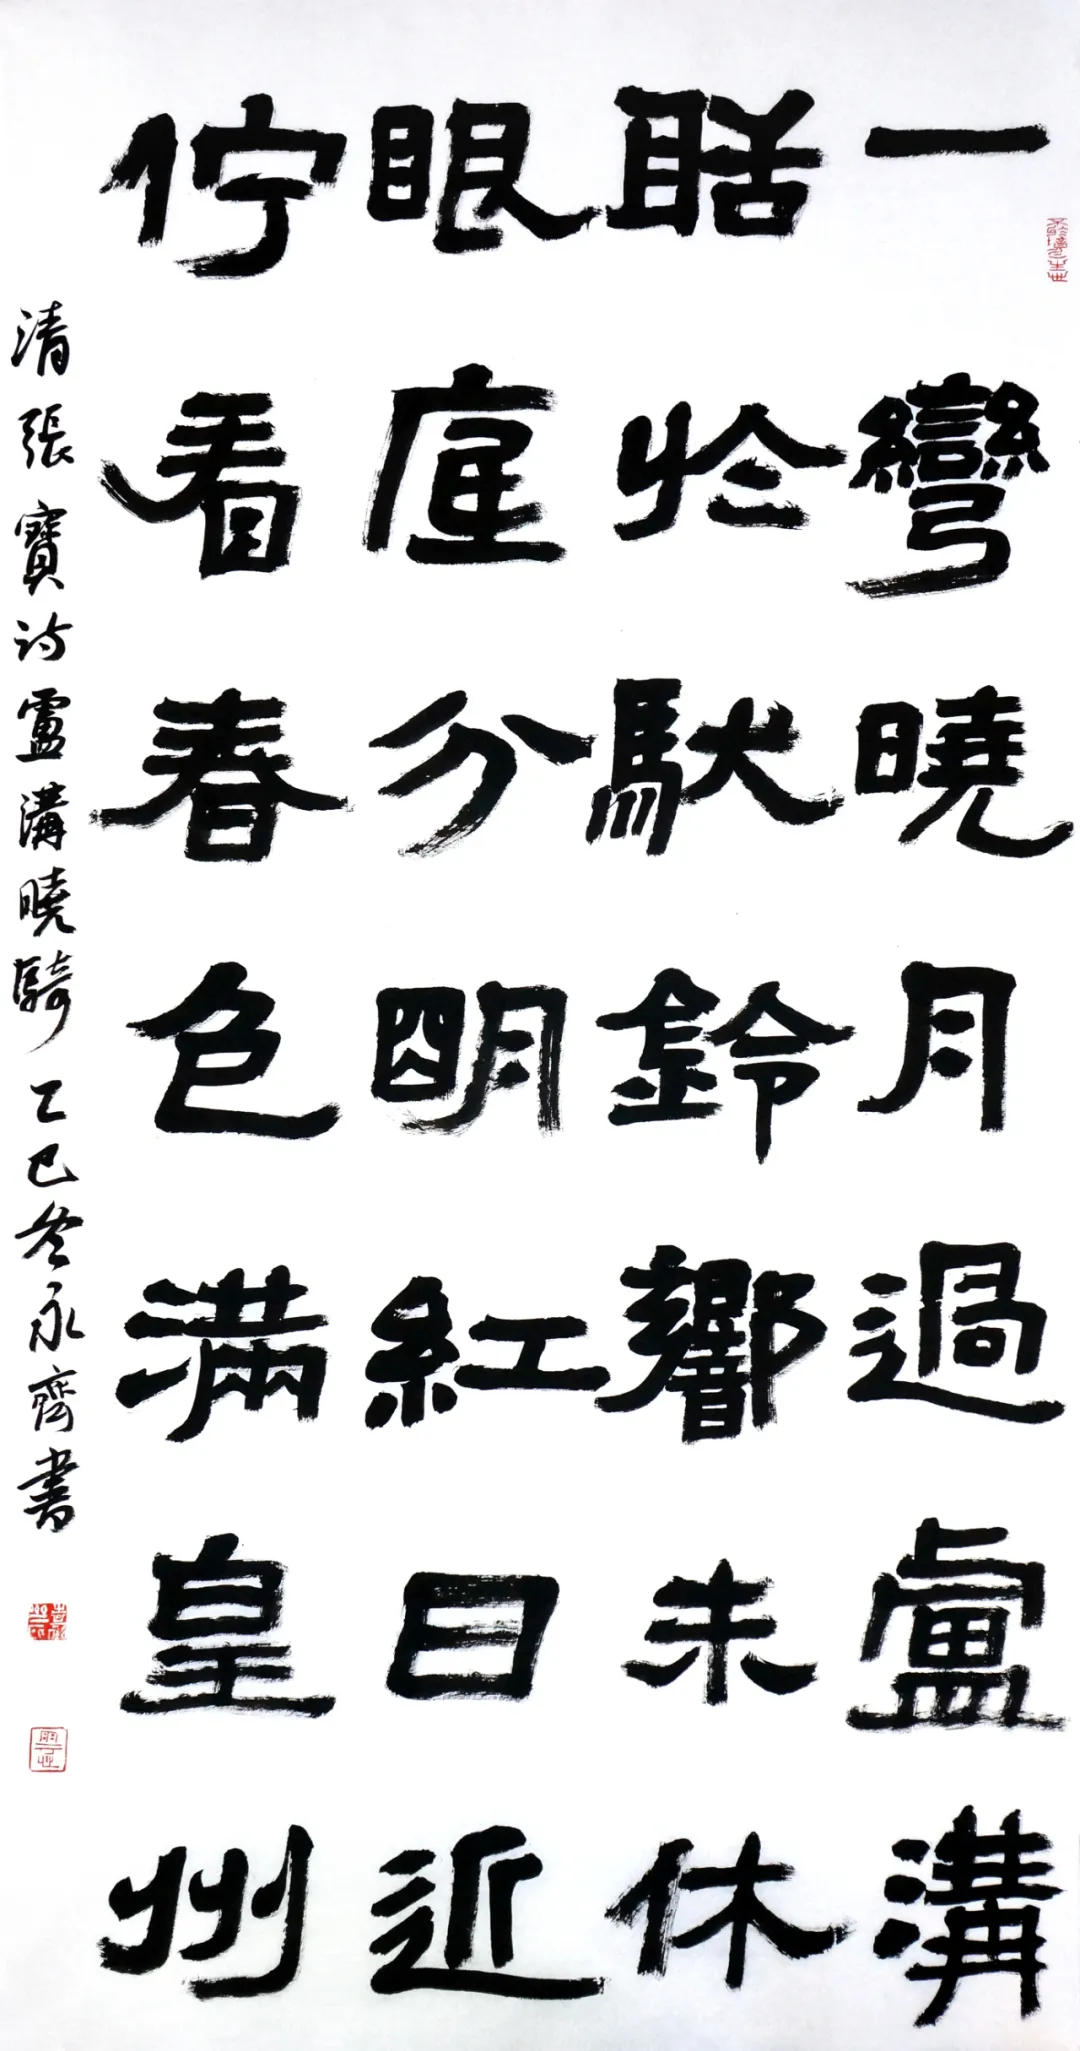 一彎曉月過盧溝
聒於馱鈴響未休
眼底分明紅日近
佇看春色滿皇州
清張寶詩盧溝曉騎乙巳冬永齊書